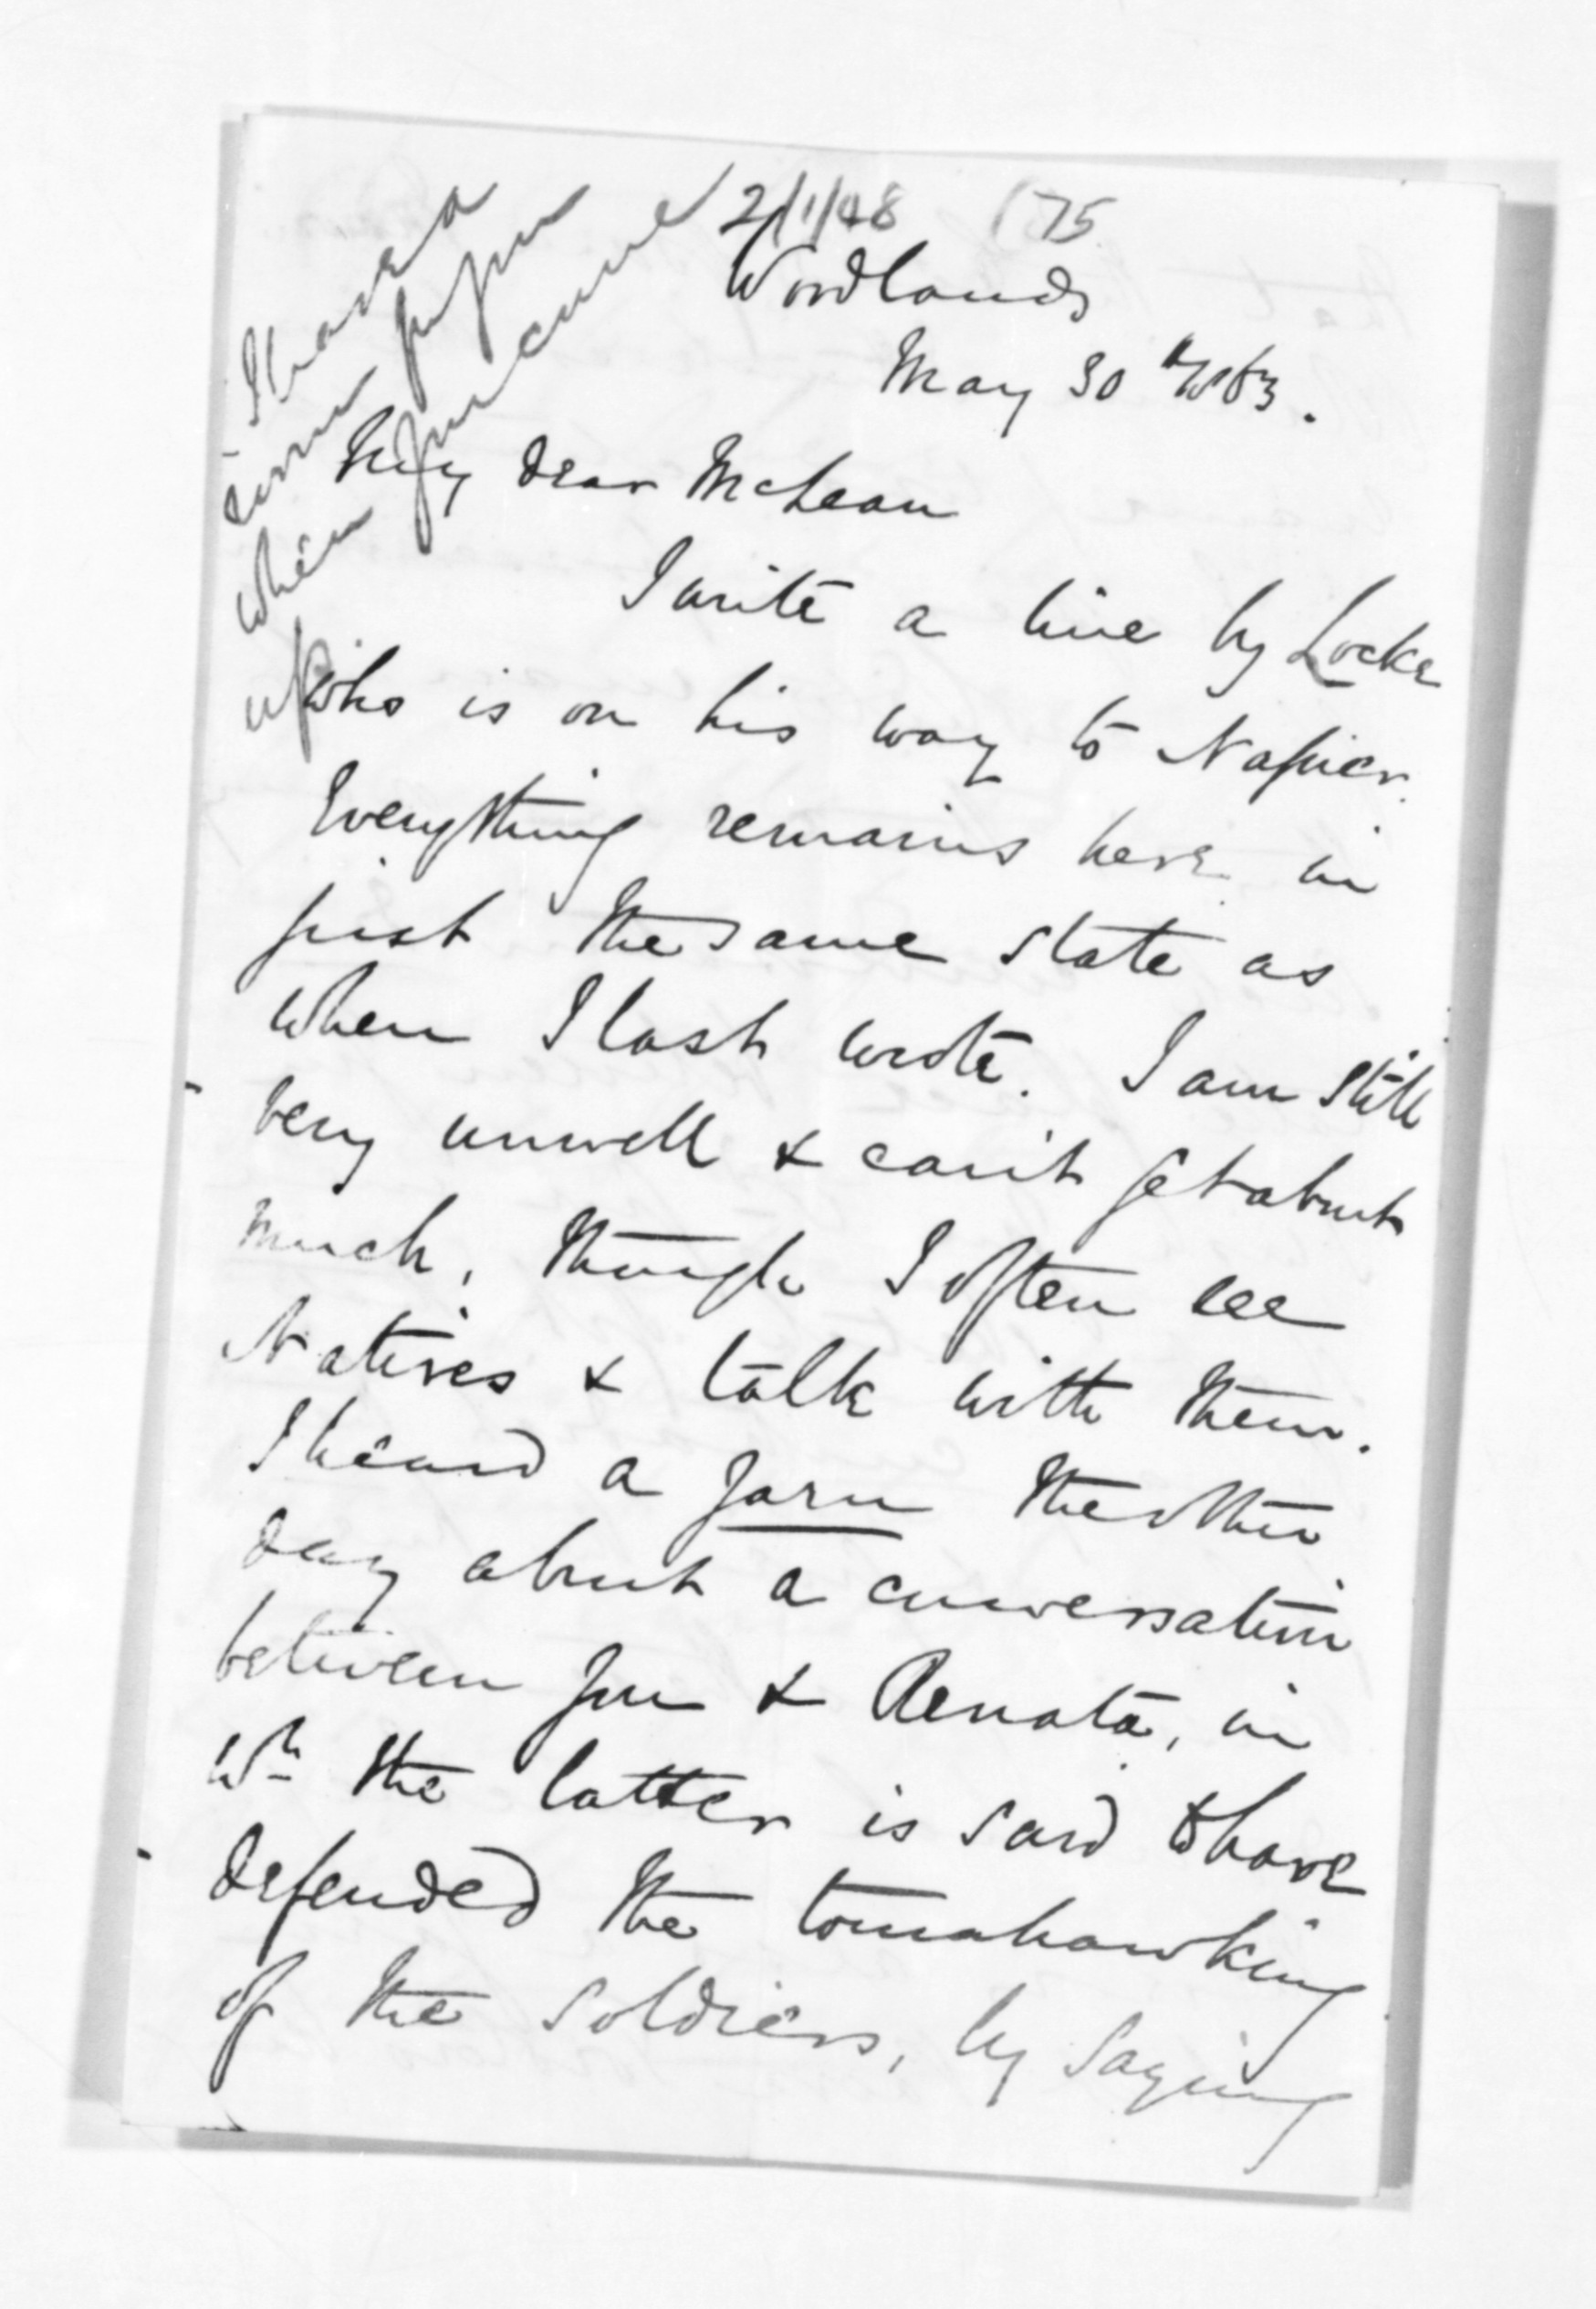 2/1/48 175
Woodlands
May 30th/63.
My dear McLean
I write a line by Locke
who is on his way to Napier.
Everything remains here in
just the same state as
when I last wrote. I am still
very unwell & can't get about
much, though I often see
Natives & talk with them.
I heard a yarn the other
day about a conversation
between you & Renata, in
wh the latter is said to have
defended the tomahawking
of the soldiers, by saying
when you come
up